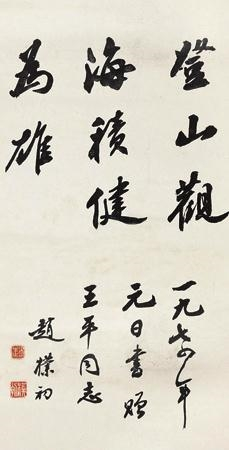 登山觀
海積健
為雄
一九七四年
元日書贈
王平同志
趙樸初